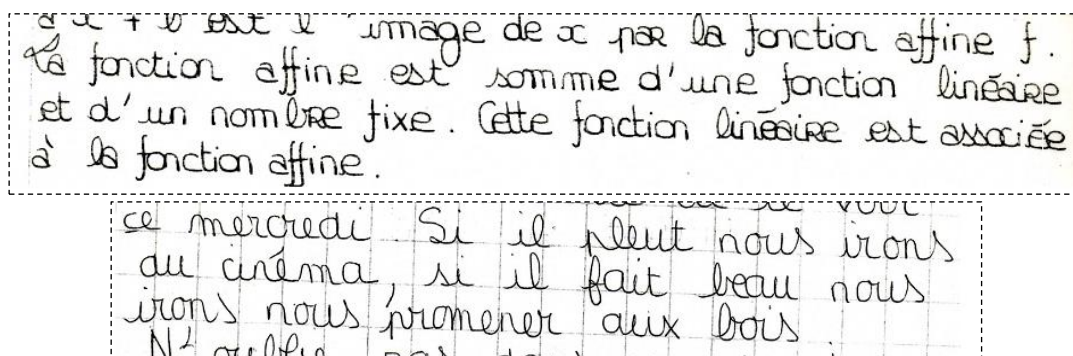 a x + b est l'image de x par la fonction affine f.
La fonction affine est somme d'une fonction linéaire
et d'un nombre fixe. Cette fonction linéaire est associée
à la fonction affine.
voir
ce mercredi. Si il pleut nous irons
au cinéma, si il fait beau nous
irons nous promener aux bois
N' oublie pas